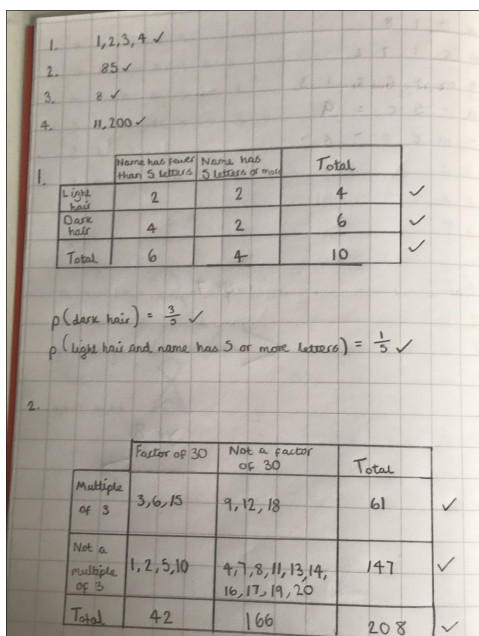 1. 1,2,3,4 ✓
2. 85 ✓
3. 8 ✓
4. 11,200 ✓
1.
Name has fewer than 5 letters Name has 5 letters or more Total
Light hair 2 2 4 ✓
Dark hair 4 2 6 ✓
Total 6 4 10 ✓
p(dark hair) = 3/5 ✓
p(light hair and name has 5 or more letters) = 1/5 ✓
2.
Factor of 30 Not a factor of 30 Total
Multiple of 3 3,6,15 9,12,18 61 ✓
Not a multiple of 3 1,2,5,10 4,7,8,11,13,14, 16,17,19,20 147 ✓
Total 42 166 208 ✓